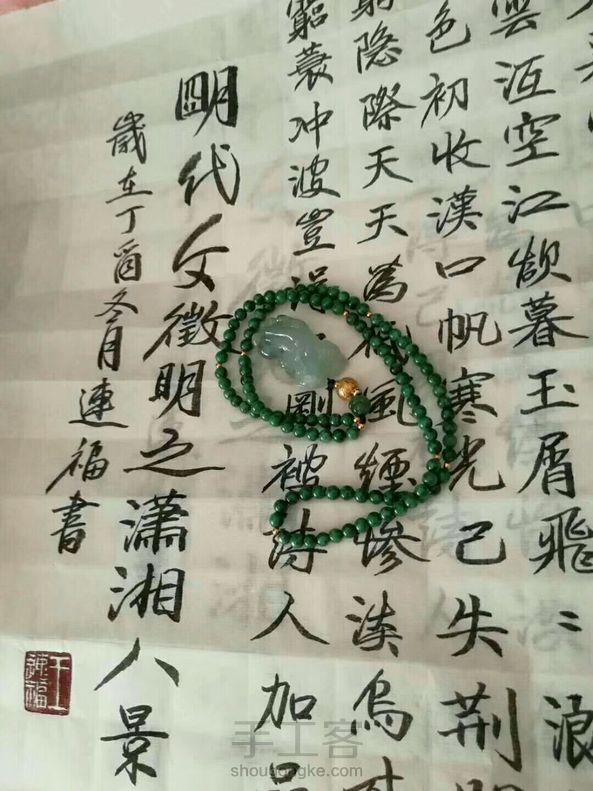 雲空江暮玉屑飛〻浪
色初收漢口帆寒光已失荆
隐際天天為煙惨淡烏
窮蓑冲波豈剛被詩人加
明代文徵明之瀟湘八景
歲在丁酉冬月連福書
王連福
手工客
shougongke.com